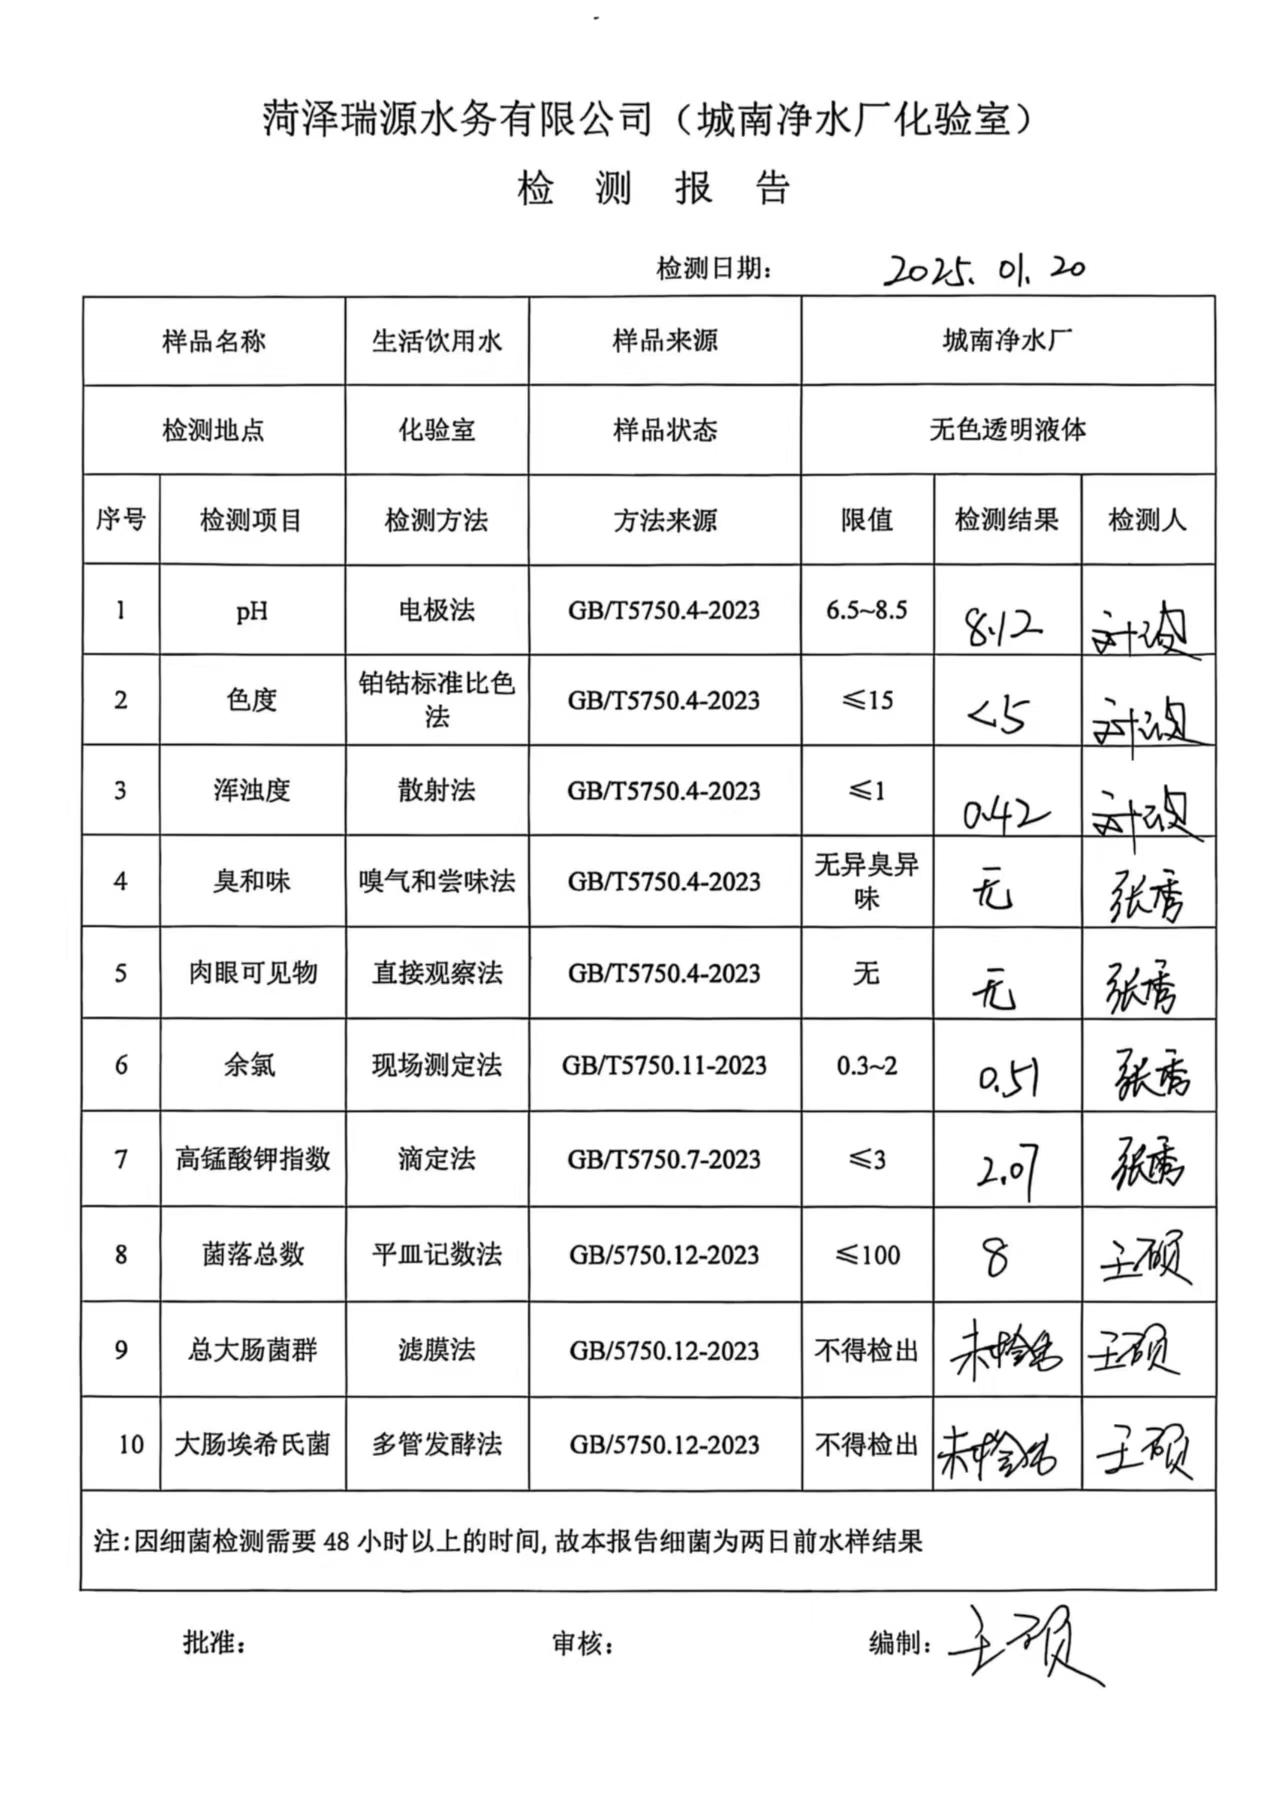 菏泽瑞源水务有限公司（城南净水厂化验室）
检 测 报 告
检测日期: 2025.01.20
样品名称 生活饮用水 样品来源 城南净水厂
检测地点 化验室 样品状态 无色透明液体
序号 检测项目 检测方法 方法来源 限值 检测结果 检测人
1 pH 电极法 GB/T5750.4-2023 6.5~8.5 8.12
2 色度 铂钴标准比色法 GB/T5750.4-2023 ≤15 <5
3 浑浊度 散射法 GB/T5750.4-2023 ≤1 0.42
4 臭和味 嗅气和尝味法 GB/T5750.4-2023 无异臭异味 无 张秀
5 肉眼可见物 直接观察法 GB/T5750.4-2023 无 无 张秀
6 余氯 现场测定法 GB/T5750.11-2023 0.3~2 0.51 张秀
7 高锰酸钾指数 滴定法 GB/T5750.7-2023 ≤3 2.07 张秀
8 菌落总数 平皿记数法 GB/5750.12-2023 ≤100 8 王硕
9 总大肠菌群 滤膜法 GB/5750.12-2023 不得检出 未检出 王硕
10 大肠埃希氏菌 多管发酵法 GB/5750.12-2023 不得检出 未检出 王硕
注:因细菌检测需要 48 小时以上的时间,故本报告细菌为两日前水样结果
批准: 审核: 编制: 王硕